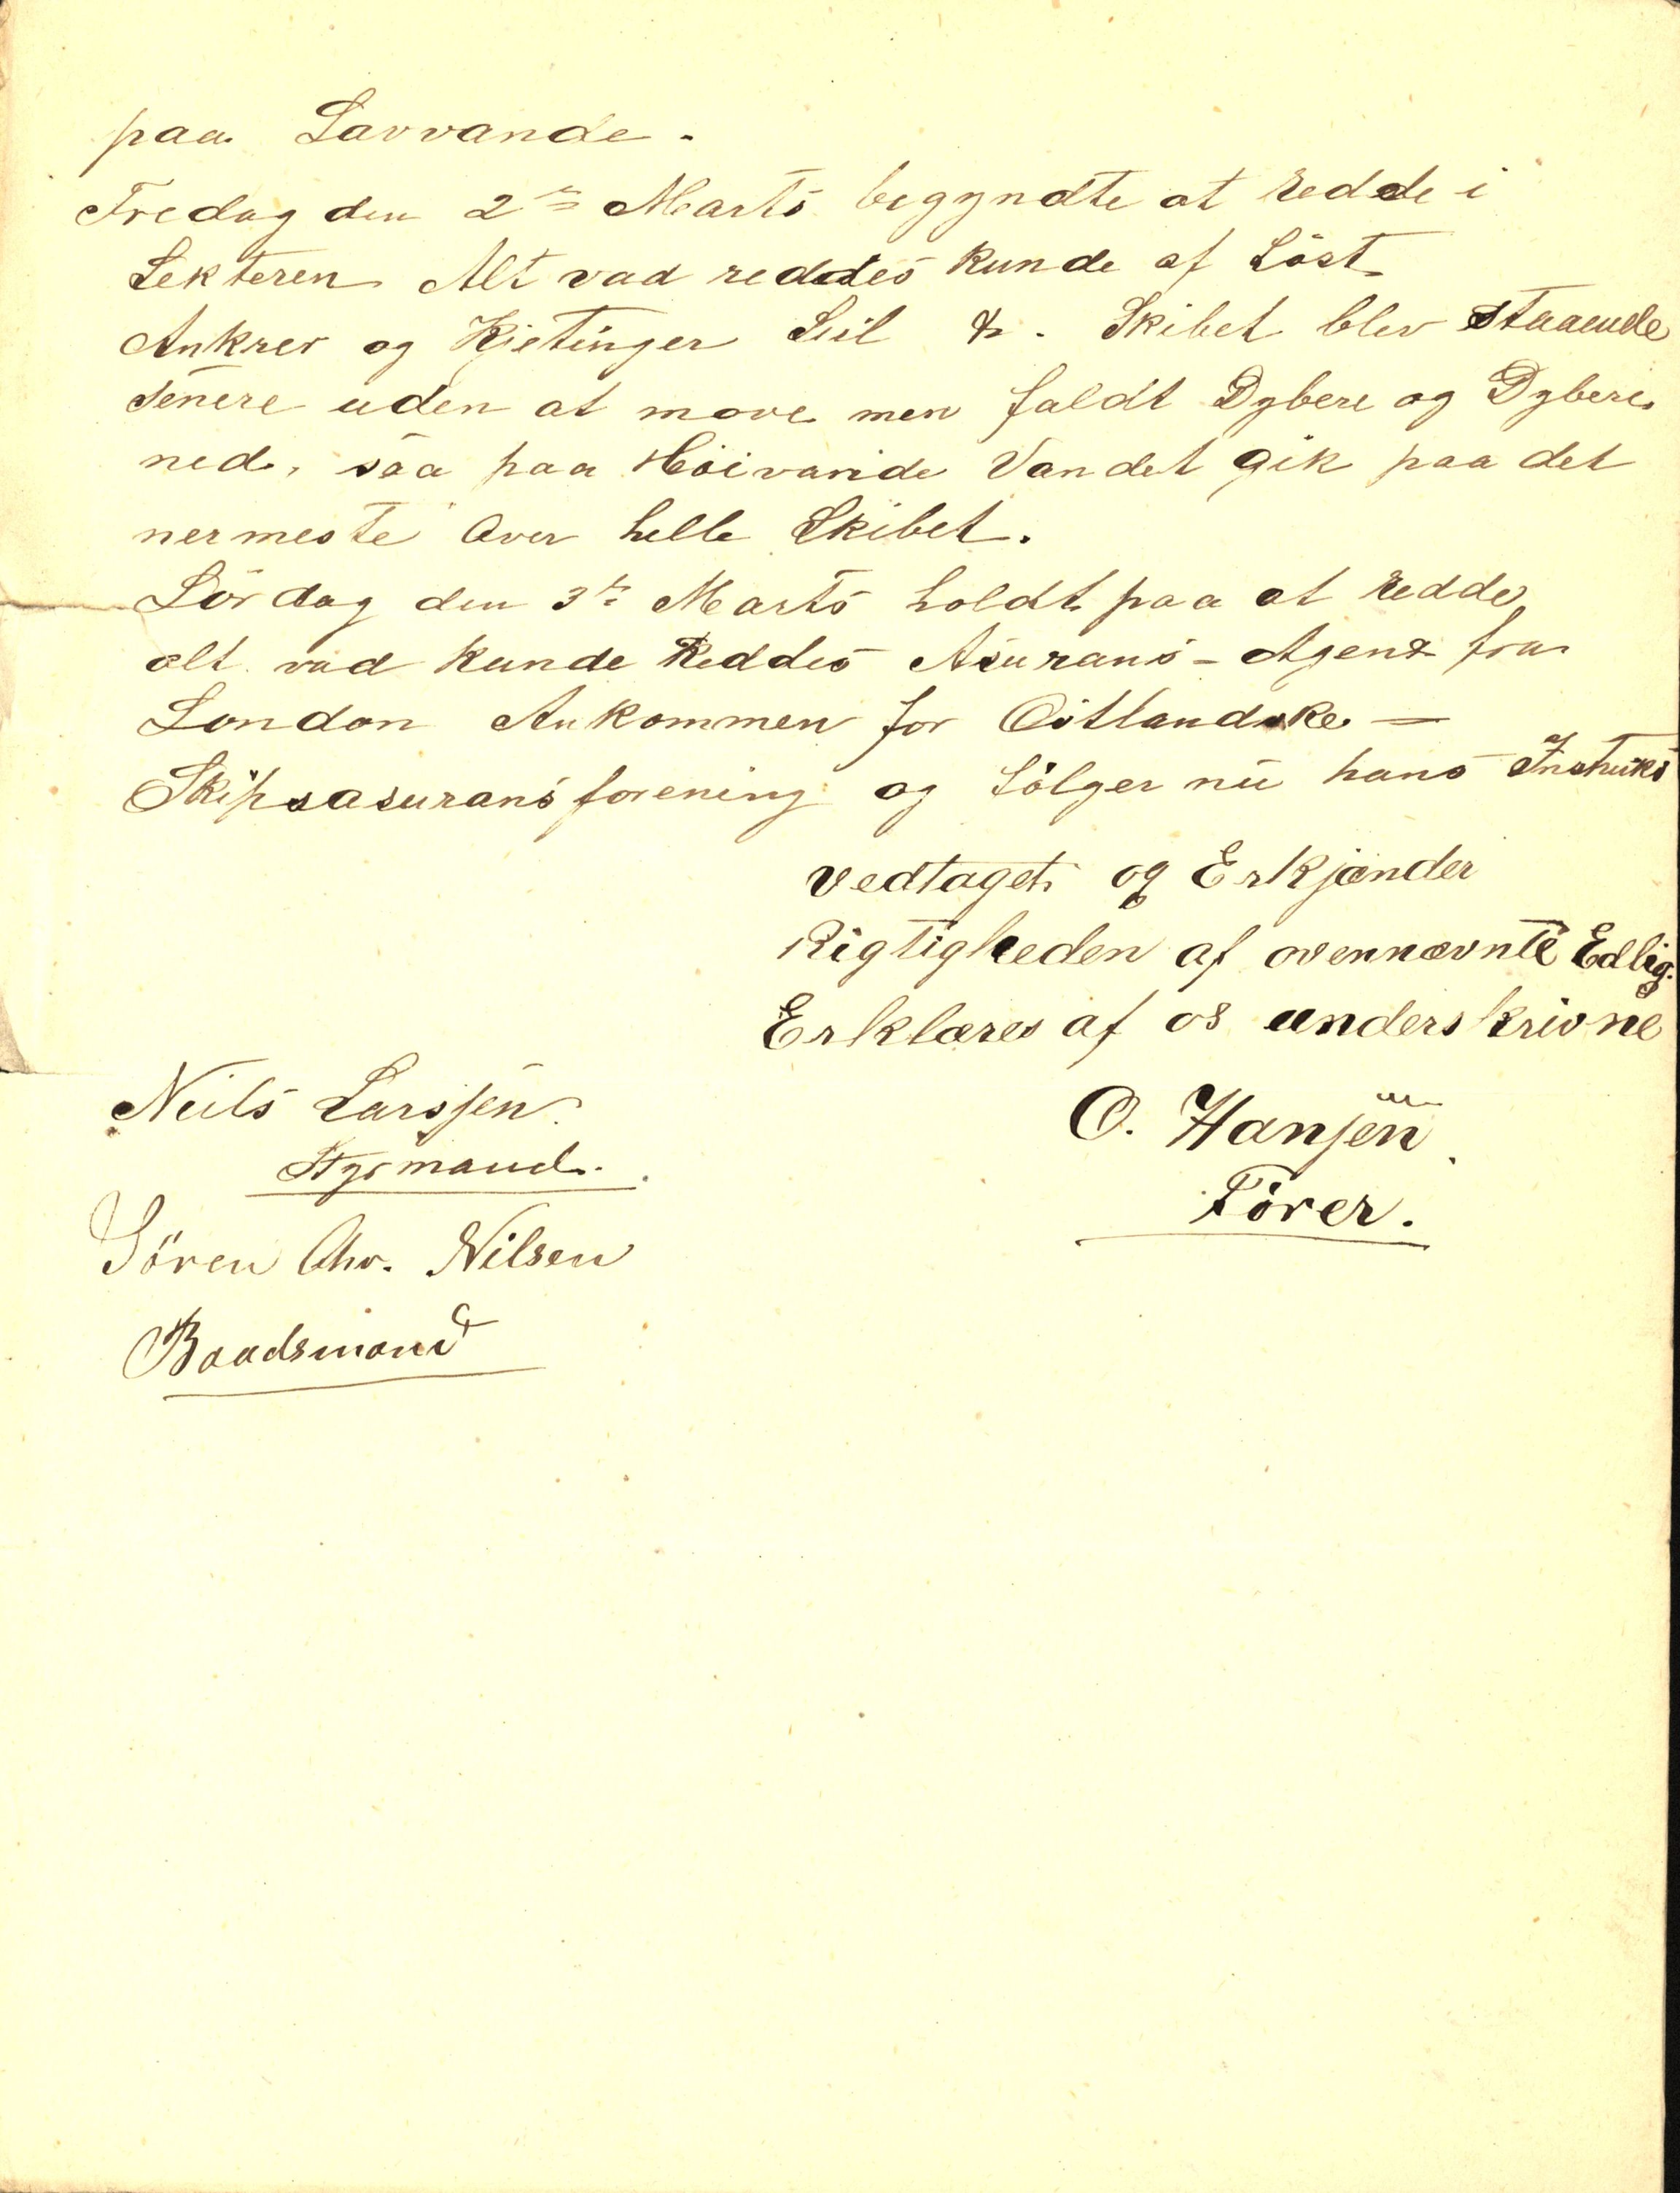 paa Lavvande.
Fredag den 2n Marts begyndte at redde i
Lekteren Alt vad reddes kunde af Löst
Ankrer og Kjetinger Seil &. Skibet blev staaende
senere uden at move men faldt Dybere og Dybere
ned, saa paa Höivande Vandet gik paa det
nermeste Over helle Skibet.
Lördag den 3n Marts holdt paa at redde
alt vad kunde Reddes Asurans-Agent fra
London Ankommen for Östlandske
Skipsasurans forening og fölger nu hans Instruks
vedtaget og Erkjænder
Rigtigheden af ovennævnte Edlig
Erklæres af os underskrivne
Neils Larssen
O. Hansen
Styrmand.
Förer.
Sören Chr. Nilsen
Baadsmand